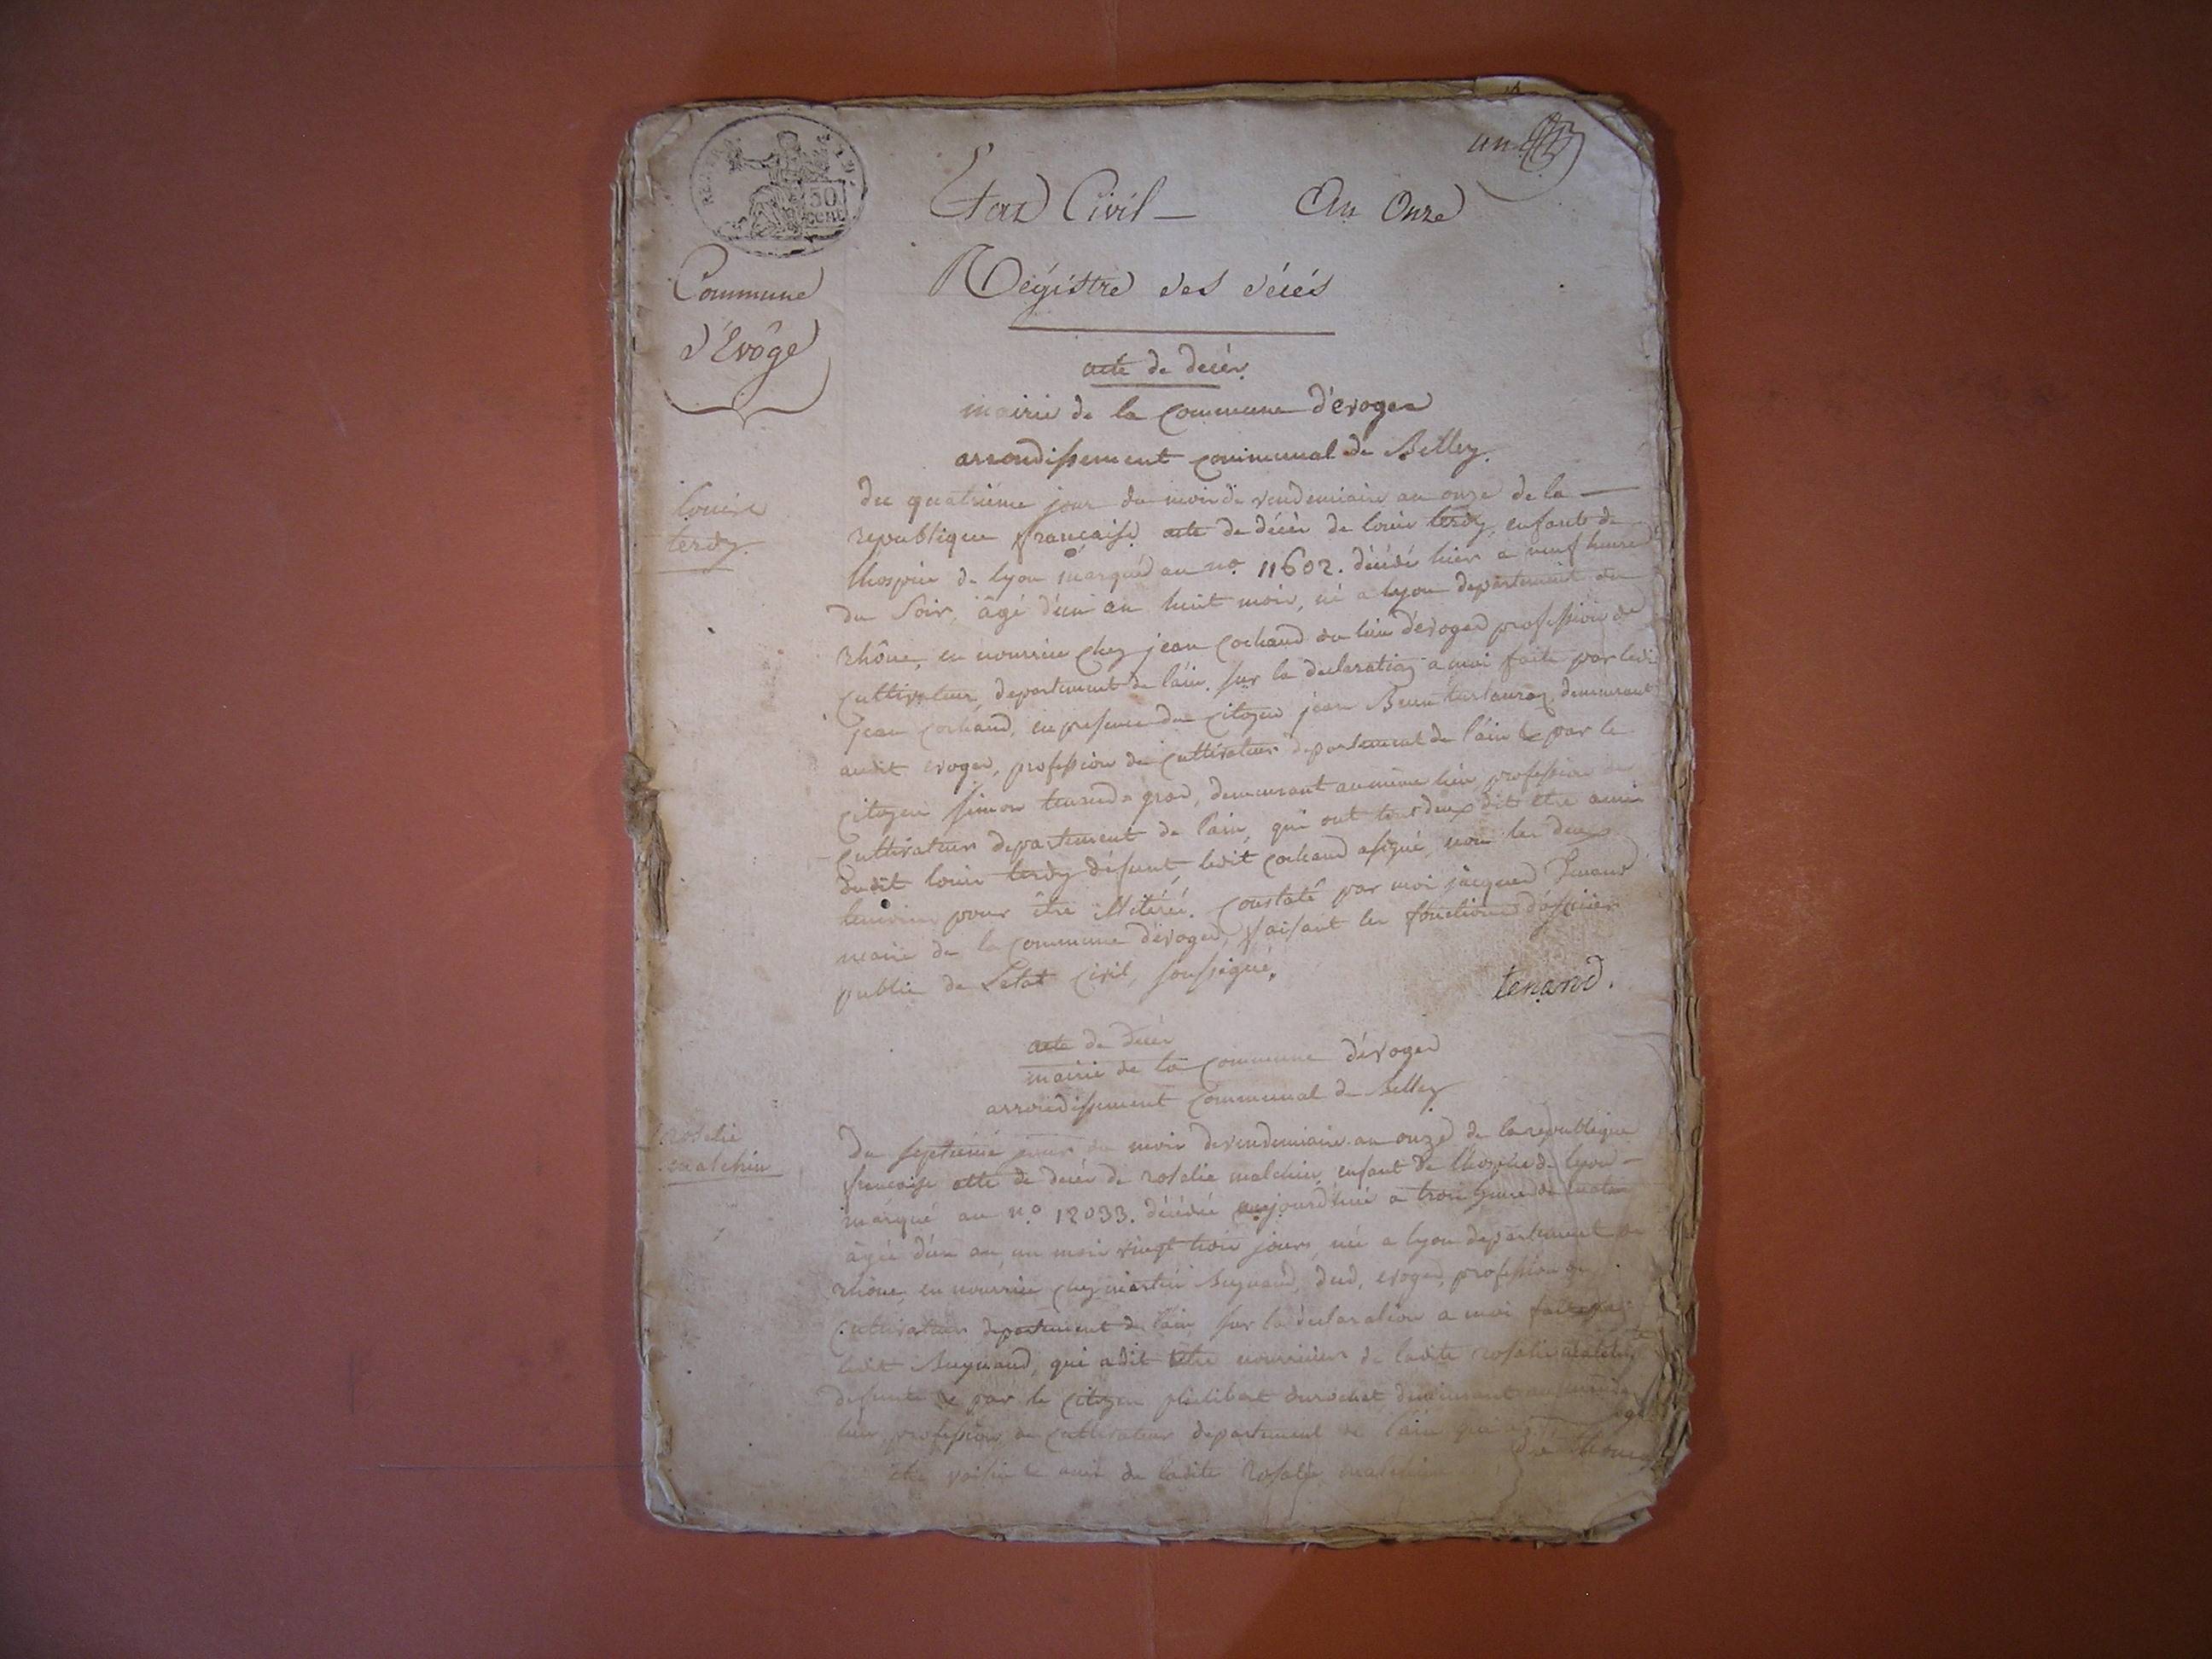 un
REP. FRA.
50
cent
Etat Civil — An Onze
Commune
d'Evôge
Régistre des décés
acte de decès
mairie de la commune d'evoges
arrondissement communal de Belley.
louis
terdy.
du quatriéme jour du mois de vendemiaire an onze de la —
republique française acte de décès de louis terdy, enfant de
lhospice de lyon marqué au no. 11602. décédé hier a neuf heures
du soir, âgé d'un an huit mois, né a lyon departement du
rhône, en nourrice chez jean cochand du lieu d'evoges profession de
cultivateur, departement de l'ain. sur la declaration a moi faite par ledit
jean cochand, en presence du citoyen jean demeurant
audit evoges, profession de cultivateur departement de l'ain & par le
citoyen simon demeurant au même lieu, profession de
cultivateur departement de l'ain, qui ont tous deux dit etre amis
dudit louis terdy défunt, ledit cochand a signé, non les deux
temoins pour être illitéré. constaté par moi jacques tenand
maire de la commune d'evoges, faisant les fonctions d'officier
public de Letat civil, soussigné,
tenand.
acte de decès
mairie de la commune d'evoges
arrondissement communal de Belley
rosalie
malchin
Du septiéme jour du mois de vendemiaire an onze de la republique
française acte de decès de rosalie malchin, enfant de lhospice de lyon —
marqué au n.o 12033. décédée aujourdhui a trois heures du matin
âgée d'un an, un mois vingt trois jours, née a lyon departement du
rhône, en nourrice chez martin Buynand, dud. evoges, profession de
cultivateur departement de l'ain, sur la declaration a moi faite par
ledit Buynand, qui a dit etre nourricier de ladite rosalie malchin
defunte & par le citoyen philibert durochat demeurant au même
lieu, profession de cultivateur departement de l'ain qui a
etre voisin & ami de ladite Rosalie malchin